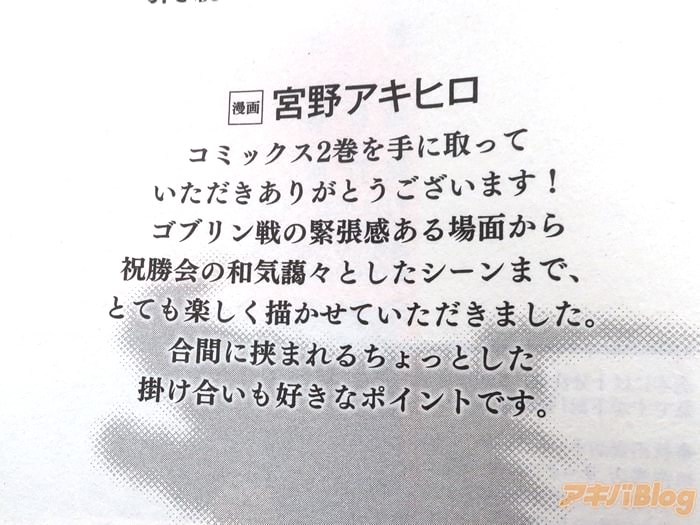 漫画 宮野アキヒロ
コミックス2巻を手に取って
いただきありがとうございます！
ゴブリン戦の緊張感ある場面から
祝勝会の和気藹々としたシーンまで、
とても楽しく描かせていただきました。
合間に挟まれるちょっとした
掛け合いも好きなポイントです。
アキバBlog